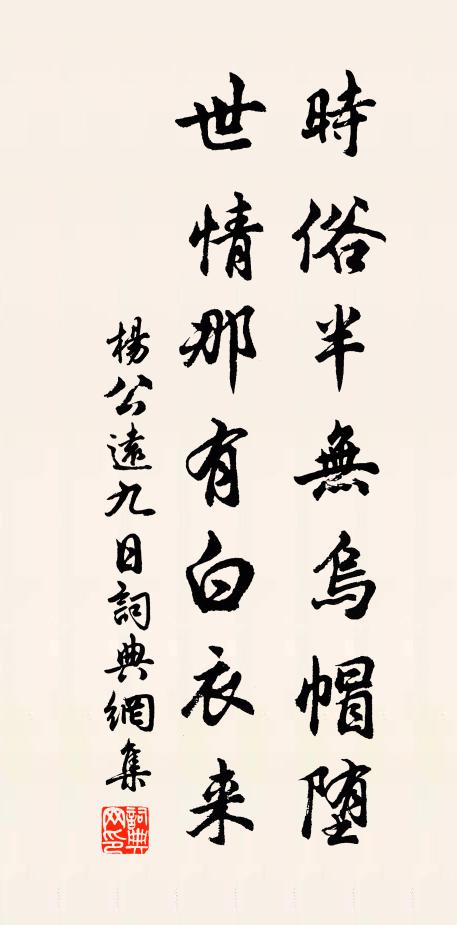 時俗半無烏帽堕
世情那有白衣来
楊公遠九日詞典網集
詞典网印